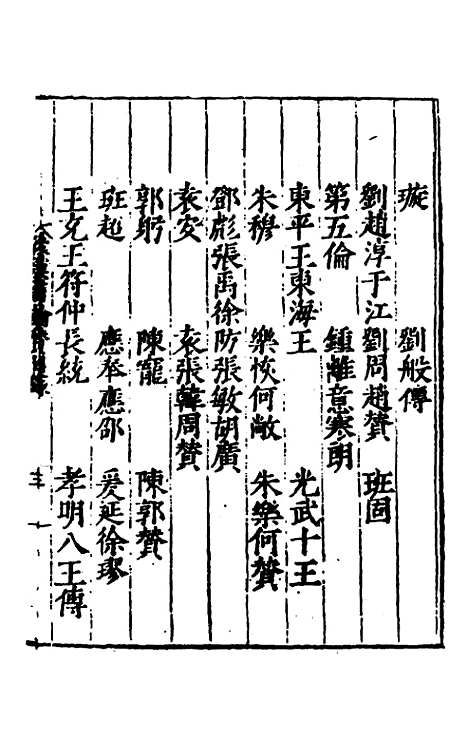 璇 劉般傳
劉趙淳于江 劉周趙贊 班固
第五倫 鍾離意寒朗
東平王東海王 光武十王
朱穆 樂恢何敞 朱樂何贊
鄧彪張禹徐防張敏胡廣
袁安 袁張韓周贊
郭躬 陳寵 陳郭贊
班超 應奉應邵 爰延徐璆
王充王符仲長統 孝明八王傳